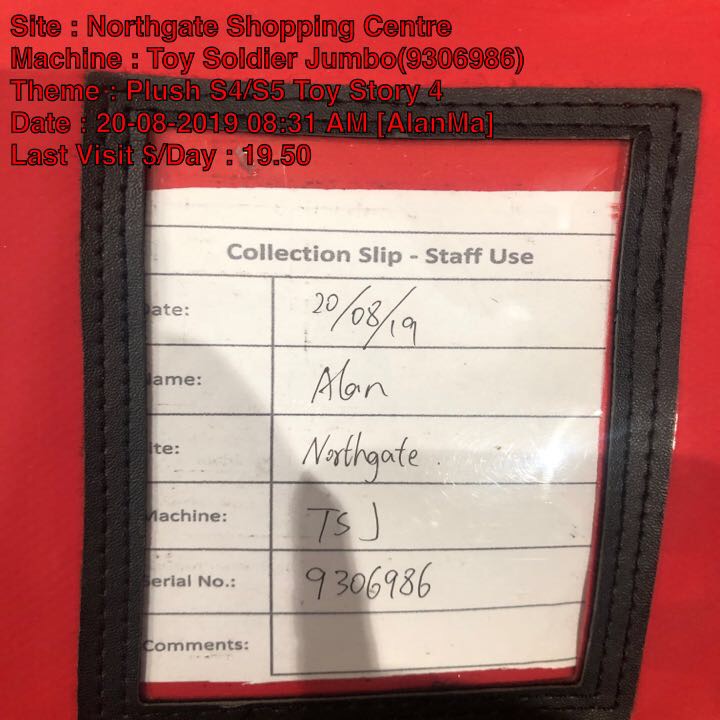 Site : Northgate Shopping Centre
Machine : Toy Soldier Jumbo(9306986)
Theme : Plush S4/S5 Toy Story 4
Date : 20-08-2019 08:31 AM [AlanMa]
Last Visit $/Day : 19.50
Collection Slip - Staff Use
ate: 20/08/19
ame: Alan
ite: Northgate.
Machine: TSJ
erial No.: 9306986
Comments: